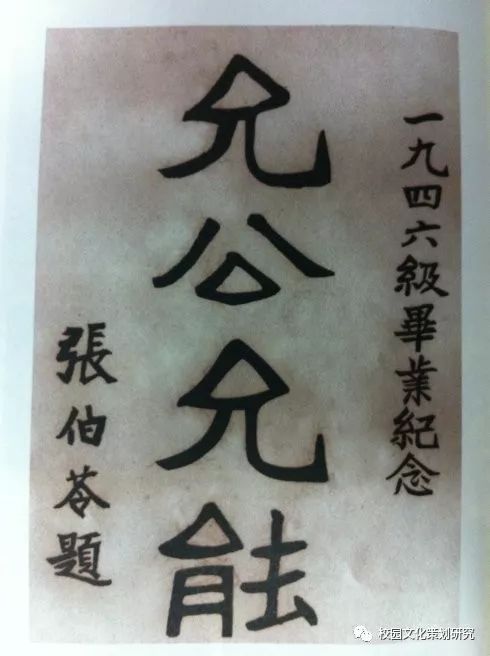 一九四六級畢業紀念
允公允能
張伯苓題
校园文化策划研究